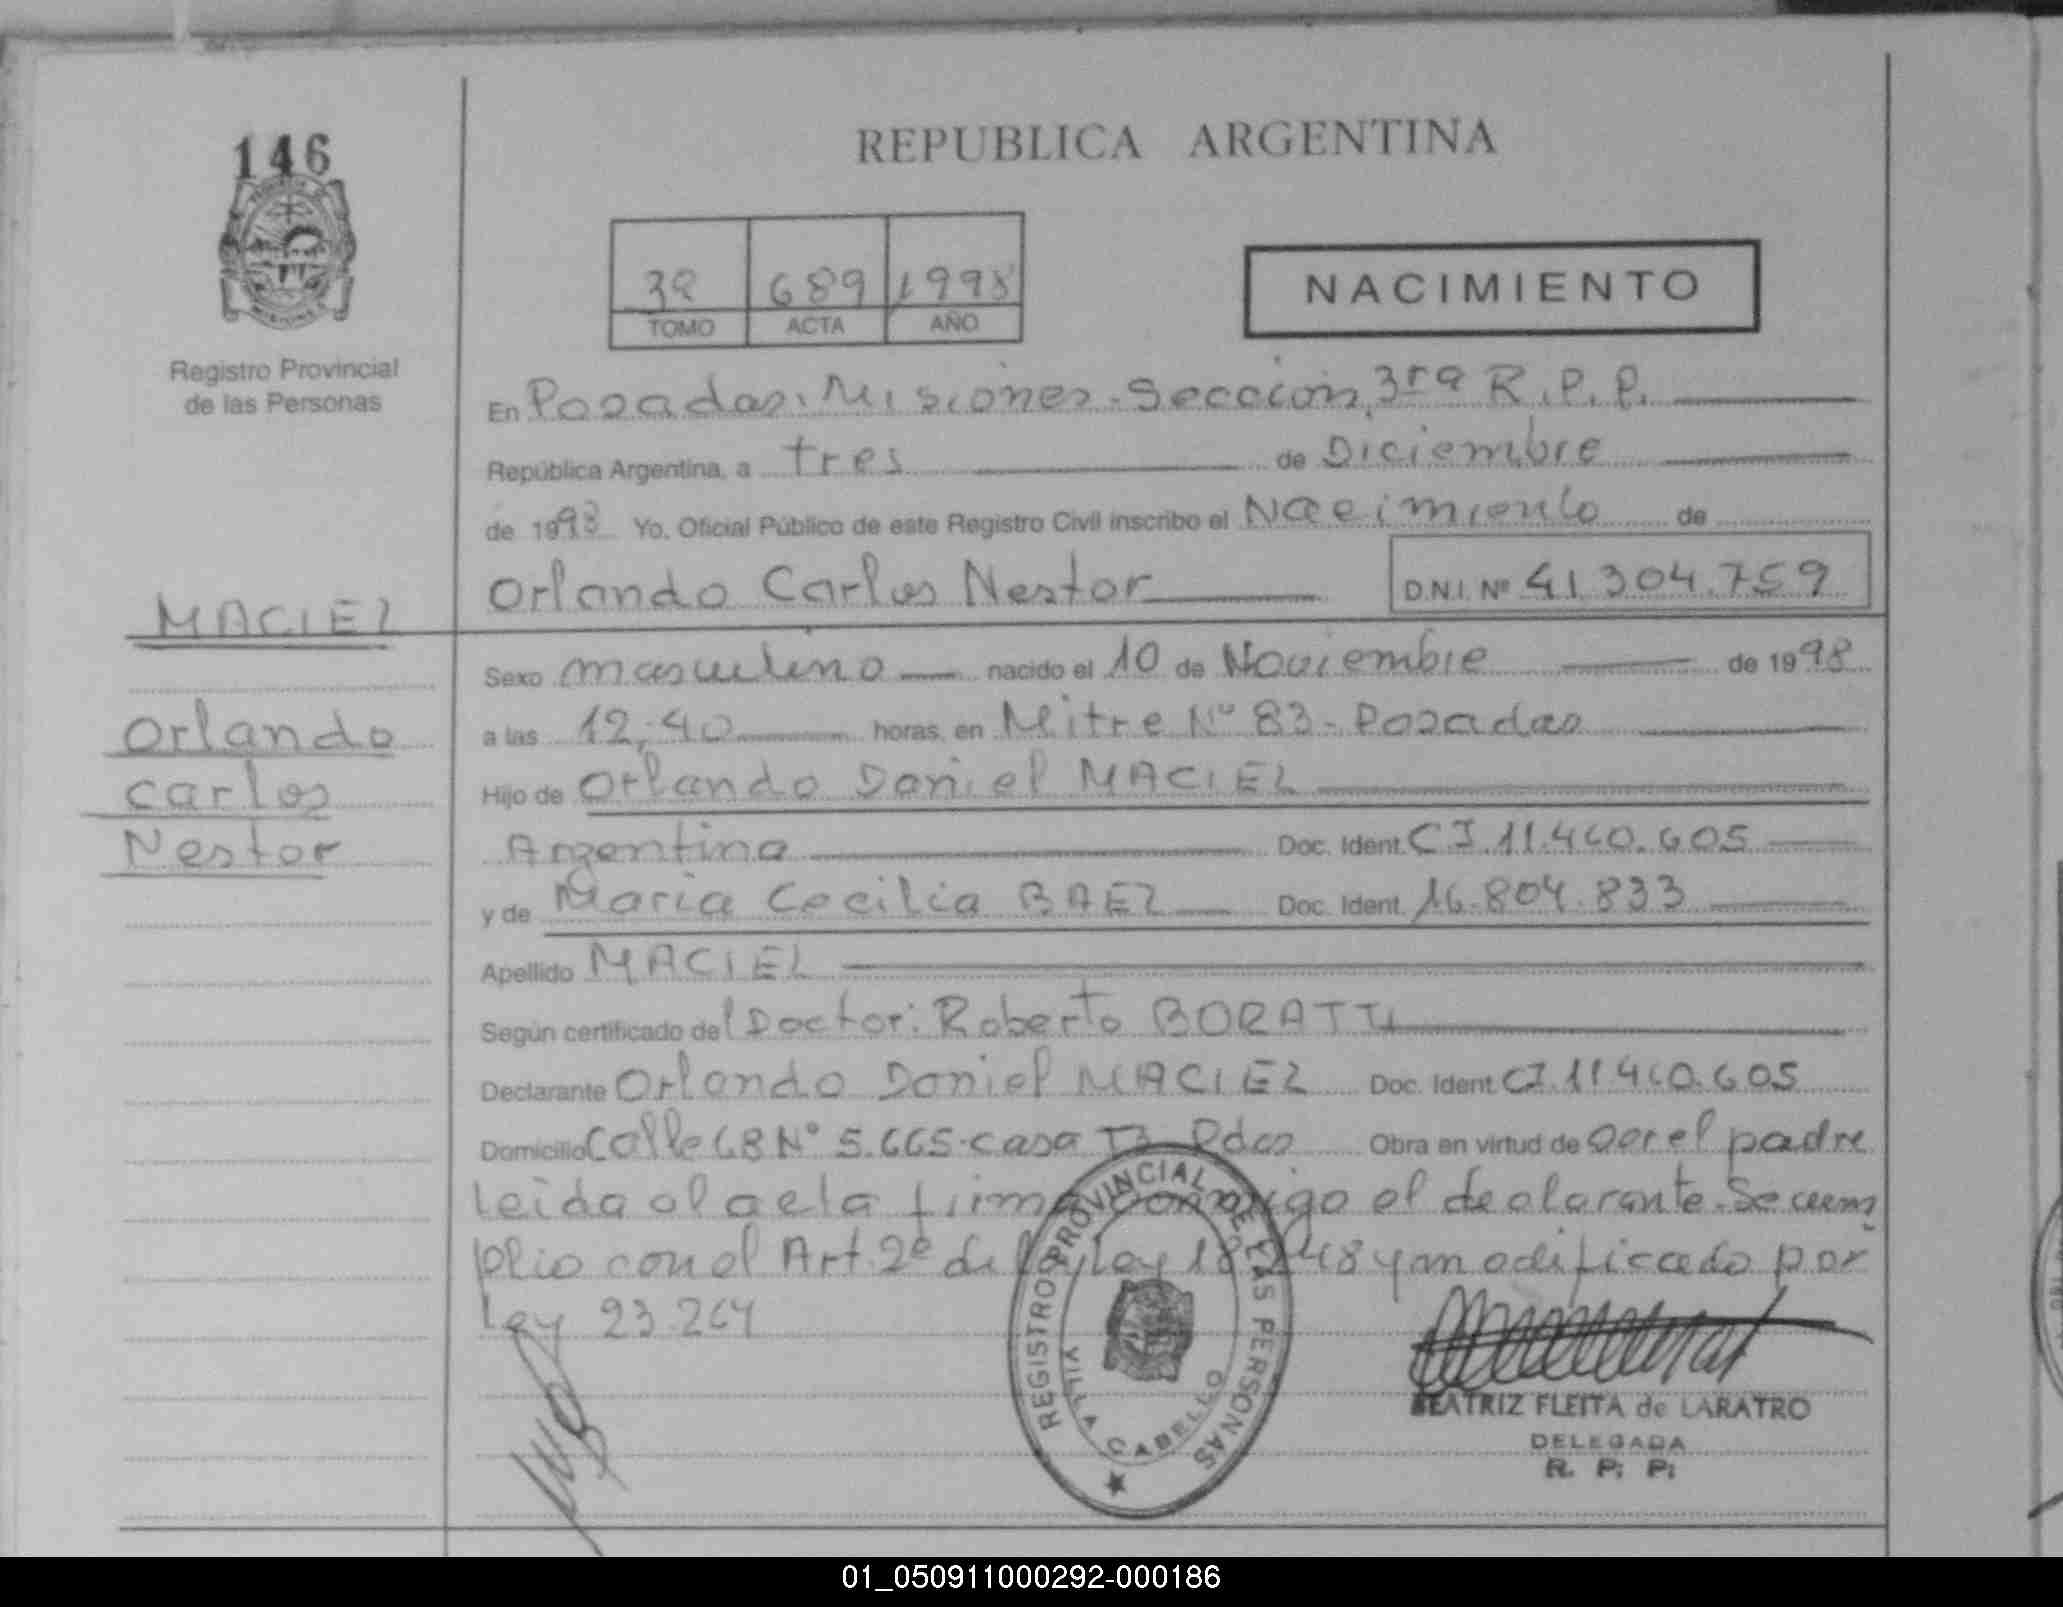 146
REPUBLICA ARGENTINA
689 1998
TOMO ACTA AÑO
NACIMIENTO
Registro Provincial
de las Personas
En Posadas. Misiones. Sección 3ra R.P.P.
República Argentina, a tres de Diciembre
de 1998 Yo, Oficial Público de este Registro Civil inscribo el Nacimiento de
Orlando Carlos Nestor D.N.I. Nº 41.304.759
MACIEL
Sexo masculino nacido el 10 de Noviembre de 1998
Orlando
a las 12,40 horas, en Mitre Nº 83 - Posadas
Carlos
Hijo de Orlando Daniel MACIEL
Nestor
Argentina Doc. Ident. CI. 11.460.605
y de Maria Cecilia BAEZ Doc. Ident. 16.804.833
Apellido MACIEL
Según certificado del Doctor: Roberto BORATTI
Declarante Orlando Daniel MACIEL Doc. Ident CI. 11.460.605
Domicilio Calle 68 Nº 5.665. casa Pdas Obra en virtud de ser el padre
leida el acta firma conmigo el declarante. Se cum
plio con el Art. 2º de la Ley y modificado por
Ley 23.264
REGISTRO PROVINCIAL DE LAS PERSONAS
VILLA CABELLO
BEATRIZ FLEITA de LARATRO
DELEGADA
R. P. P.
01_050911000292-000186